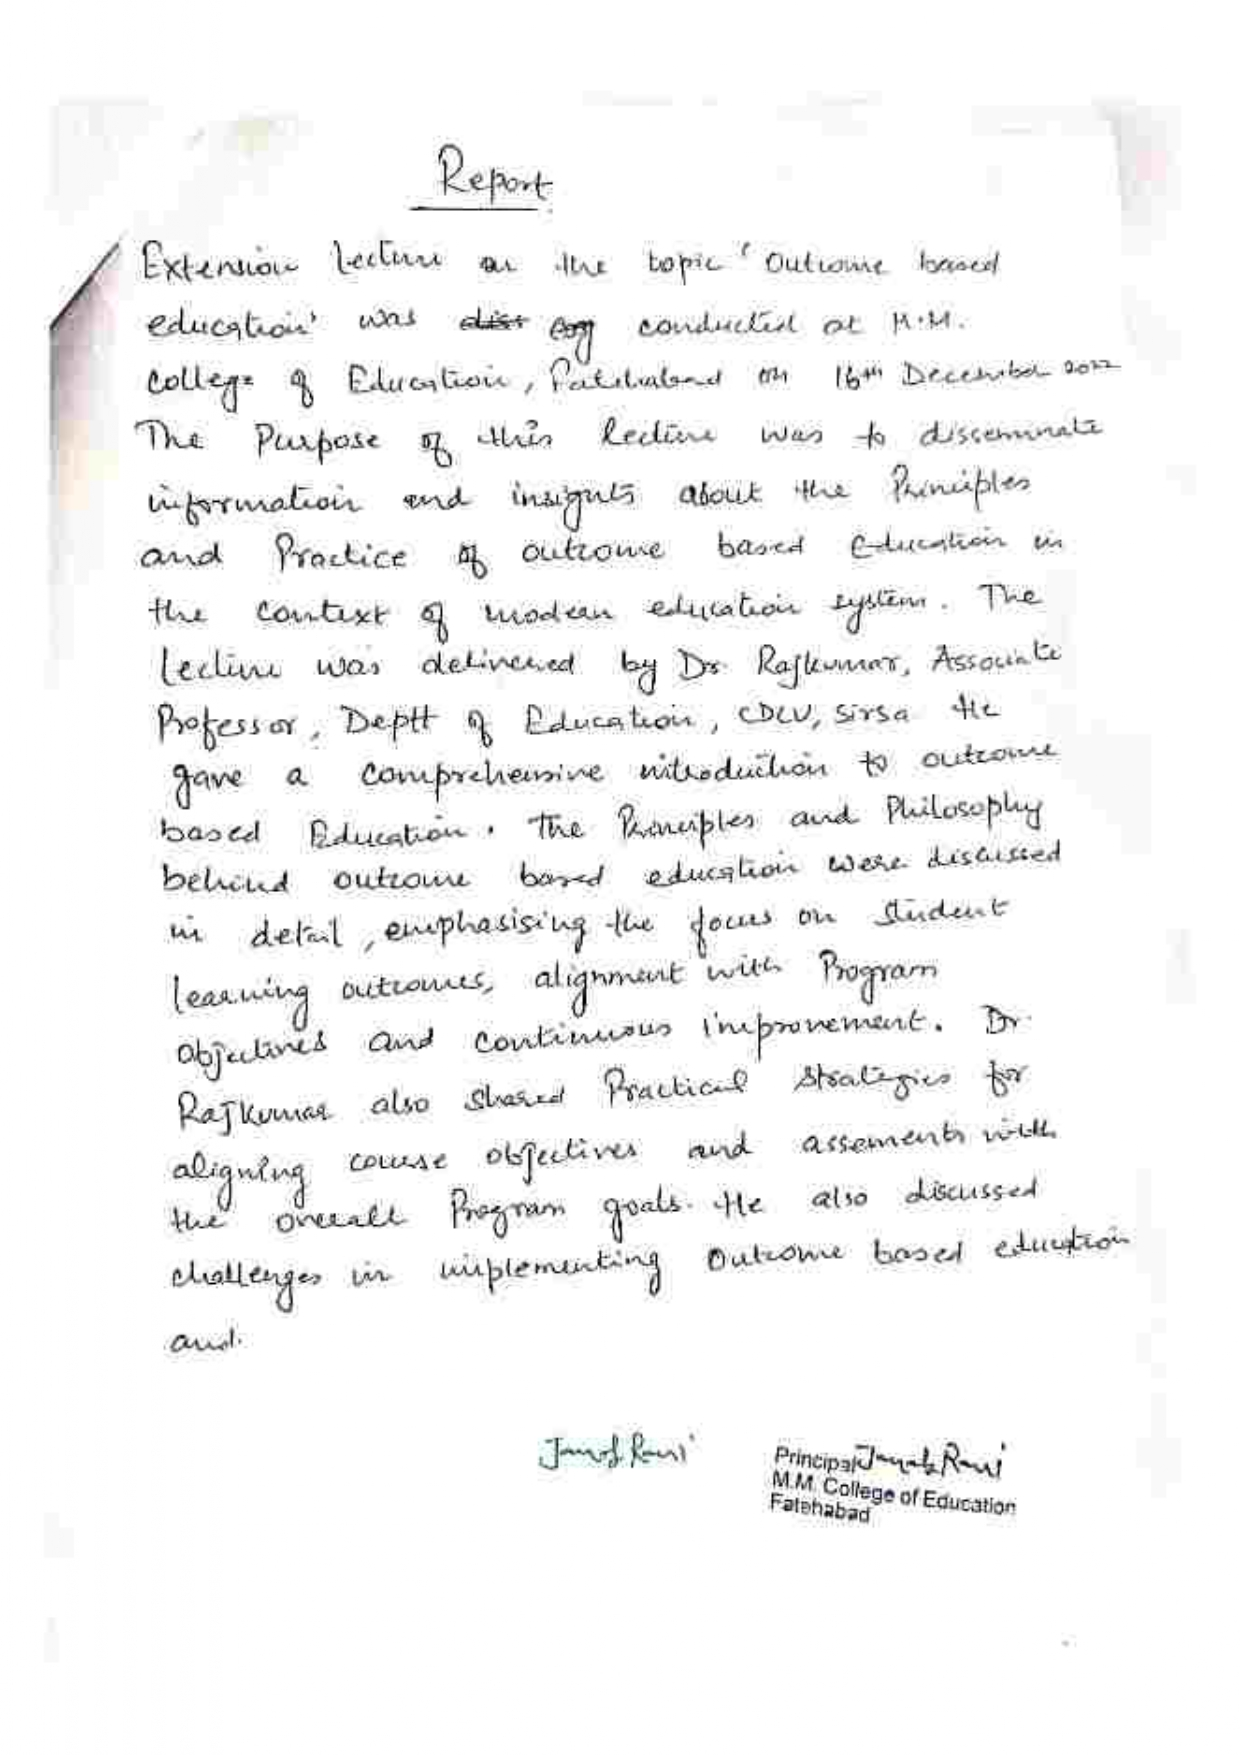 Report
Extension lecture on the topic ' Outcome based
education' was conducted at M.M.
college of Education, Fatehabad on 16th December 2022
The Purpose of this lecture was to disseminate
information and insights about the Principles
and Practice of outcome based Education in
the context of modern education system. The
lecture was delivered by Dr. Rajkumar, Associate
Professor, Deptt of Education, CDLU, Sirsa He
gave a comprehensive introduction to outcome
based Education. The Principles and Philosophy
behind outcome based education were discussed
in detail, emphasising the focus on student
learning outcomes, alignment with Program
objectives and continuous improvement. Dr.
Rajkumar also shared Practical Strategies for
aligning course objectives and assements with
the overall Program goals. He also discussed
challenges in implementing Outcome based education
and.
Janak Rani
Principal Janak Rani
M.M. College of Education
Fatehabad